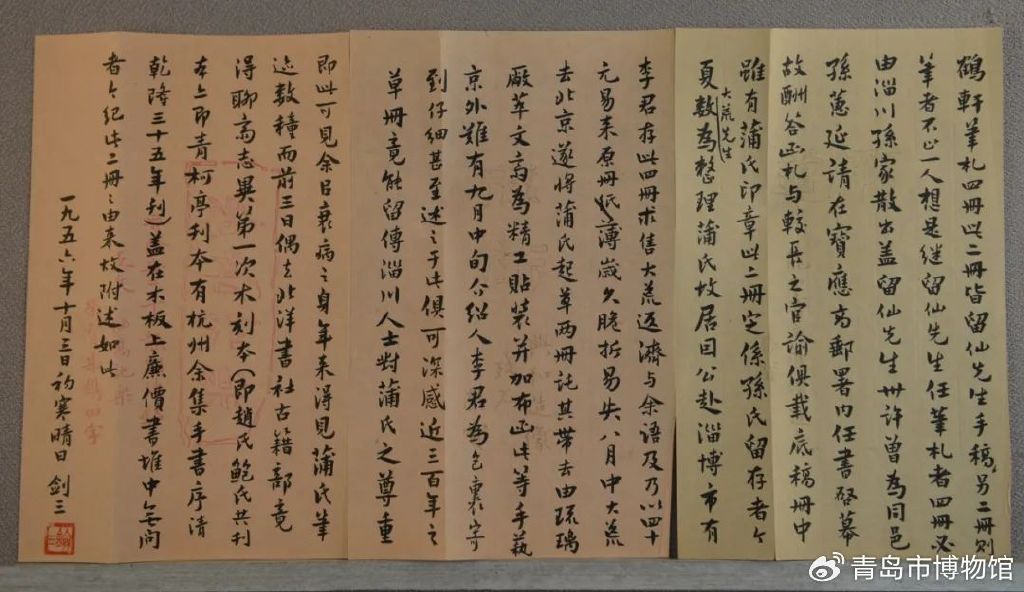 鶴軒筆札四冊此二冊皆留仙先生手稿另二冊則
筆者不止一人想是继留仙先生任筆札者四冊必
由淄川孫家散出盖留仙先生卅许曾為同邑
孫蕙延請在寶應高郵署内任書啓幕
故酬答函札与較長之官諭俱載底稿冊中
雖有蒲氏印章此二冊定係孫氏留存者
大荒先生
夏數為整理蒲氏故居因公赴淄博市有
李君存此四冊求售大荒返濟与余語及乃以四十
元易来原冊紙薄歲久脆折易失八月中大荒
去北京遂將蒲氏起草两冊託其带去由琉璃
厰萃文斋為精工貼裝并加布函此等手蓺
京外難有九月中旬介绍人李君為包裹寄
到仔細甚至述之于此俱可深感近三百年之
草冊竟能留傳淄川人士對蒲氏之尊重
即此可見余以衰病之身年来得見蒲氏筆
迹數種而前三日偶去北洋書社古籍部竟
得聊斋志異第一次木刻本(即趙氏鲍氏共刊
本上即青柯亭刊本有杭州余集手書序清
乾隆三十五年刊)盖在木板上廉價書堆中無問
者今纪此二冊之由来故附述如此
一九五六年十月三日初寒晴日 剑三
青岛市博物馆